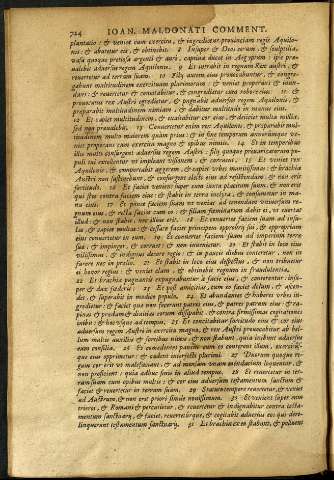 724 IOAN. MALDONATI COMMENT.
plantatio: & veniet cum exercitu, & ingredietur prouinciam regis Aquilo-
nis: & abutetur eis, & obtinebit. 8 Insuper & Deos eorum, & sculptilia,
vasa quoque pretiosa argenti & auri, captiua ducet in Aegyptum: ipse præ-
ualebit aduersus regem Aquilonis. 9 Et intrabit in regnum Rex austri, &
reuertetur ad terram suam. 10 Filij autem eius prouocabuntur, & congre-
gabunt multitudinem exercituum plurimorum: & veniet properans & inun-
dans: & reuertetur & concitabitur, & congredietur cum robore eius. 11 &
prouocatus rex Austri egredietur, & pugnabit aduersus regem Aquilonis, &
præparabit multitudinem nimiam, & dabitur multitudo in manu eius.
12 Et capiet multitudinem, & exaltabitur cor eius, & deijciet multa millia,
sed non præualebit. 13 Conuertetur enim rex Aquilonis, & præparabit mul-
titudinem multo maiorem quam prius: & in fine temporum annorumque ve-
niet properans cum exercitu magno & opibus nimiis. 14 Et in temporibus
illis multi consurgent aduersus regem Austri: filij quoque præuaricatorum po-
puli tui extollentur vt impleant visionem, & corruent. 15 Et veniet rex
Aquilonis, & comportabit aggerem, & capiet vrbes munitissimas: & brachia
Austri non sustinebunt, & consurgent electi eius ad resistendum & non erit
fortitudo. 16 Et faciet veniens super eum iuxta placitum suum, & non erit
qui stet contra faciem eius: & stabit in terra inclyta, & consumetur in ma-
nu eius. 17 Et ponet faciem suam vt veniat ad tenendum vniuersum re-
gnum eius, & recta faciet cum eo: & filiam feminarum dabit ei, vt euertat
illud: & non stabit, nec illius erit. 18 Et conuertet faciem suam ad insu-
las, & capiet multas: & cessare faciet principem opprobrij sui, & opprobrium
eius conuertetur in eum. 19 Et conuertet faciem suam ad imperium terræ
suæ, & impinget, & corruet: & non inuenietur. 20 Et stabit in loco eius
vilissimus, & indignus decore regio: & in paucis diebus conteretur, non in
furore nec in prælio. 21 Et stabit in loco eius despectus, & non tribuetur
ei honor regius: & veniet clam, & obtinebit regnum in fraudulentia,
22 Et brachia pugnantis expugnabuntur à facie eius, & conterentur: insu-
per & dux fœderis. 23 Et post amicitias, cum eo faciet dolum, & ascen-
det, & superabit in modico populo. 24 Et abundantes & vberes vrbes in-
gredietur, & faciet quæ non fecerunt patres eius, & patres patrum eius: ra-
pinas & prædam & diuitias eorum dissipabit, & contra firmissimas cogitationes
inibit: & hoc vsque ad tempus. 25 Et concitabitur fortitudo eius & cor eius
aduersum regem Austri in exercitu magno, & rex Austri prouocabitur ad bel-
lum multis auxiliis & fortibus nimis: & non stabunt, quia inibunt aduersus
eum consilia. 26 Et comedentes panem cum eo conterent illum, exercitus-
que eius opprimetur: & cadent interfecti plurimi. 27 Duorum quoque re-
gum cor erit vt malefaciant, & ad mensam vnam mendacium loquentur, &
non proficient: quia adhuc finis in aliud tempus. 28 Et reuertetur in ter-
ram suam cum opibus multis: & cor eius aduersum testamentum sanctum &
faciet & reuertetur in terram suam. 29 Statuto tempore reuertetur, & veniet
ad Austrum, & non erit priori simile nouissimum. 30 Et venient super eum
trieres, & Romani & percutietur, & reuertetur & indignabitur contra testa-
mentum sanctuarij, & faciet, reuerteturque, & cogitabit aduersus eos qui dere-
linquerunt testamentum sanctuarij. 31 Et brachia ex eo stabunt, & polluent